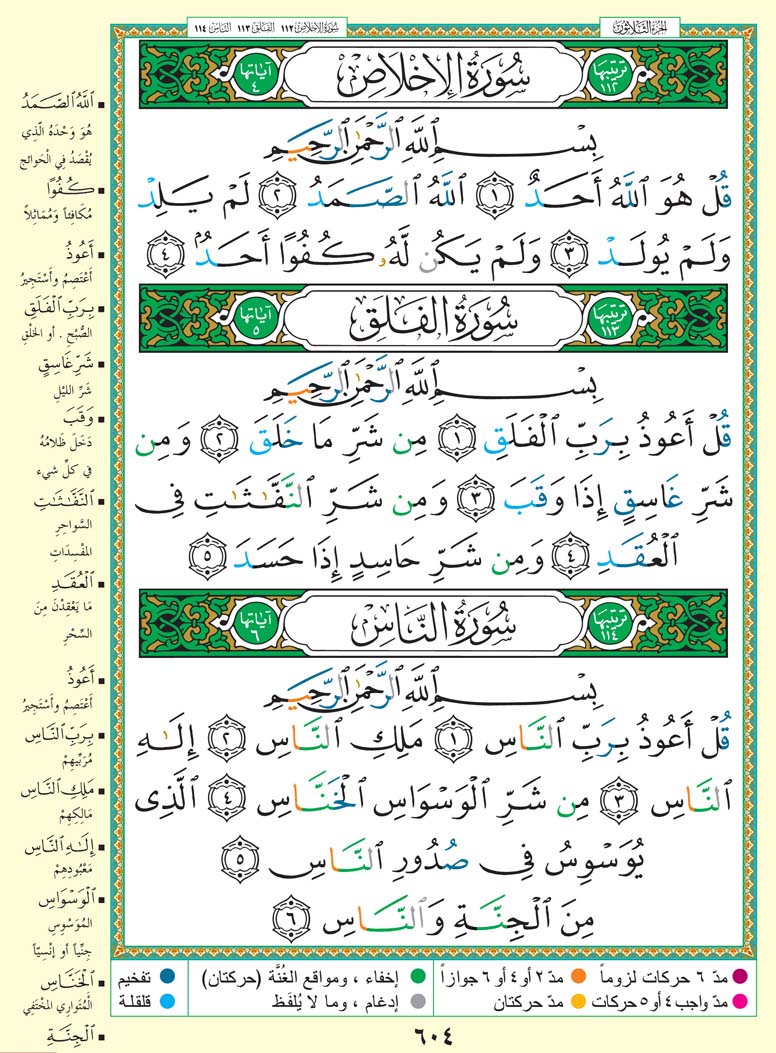 الجزء الثلاثون
سورة الإخلاص ١١٢ الفلق ١١٣ الناس ١١٤
ترتيبها ١١٢
سُورَةُ الإِخْلَاصِ
آياتها ٤
بِسْمِ ٱللَّهِ ٱلرَّحْمَٰنِ ٱلرَّحِيمِ
قُلْ هُوَ ٱللَّهُ أَحَدٌ ١ ٱللَّهُ ٱلصَّمَدُ ٢ لَمْ يَلِدْ
وَلَمْ يُولَدْ ٣ وَلَمْ يَكُن لَّهُۥ كُفُوًا أَحَدٌۢ ٤
ترتيبها ١١٣
سُورَةُ الفَلَقِ
آياتها ٥
بِسْمِ ٱللَّهِ ٱلرَّحْمَٰنِ ٱلرَّحِيمِ
قُلْ أَعُوذُ بِرَبِّ ٱلْفَلَقِ ١ مِن شَرِّ مَا خَلَقَ ٢ وَمِن
شَرِّ غَاسِقٍ إِذَا وَقَبَ ٣ وَمِن شَرِّ ٱلنَّفَّٰثَٰتِ فِى
ٱلْعُقَدِ ٤ وَمِن شَرِّ حَاسِدٍ إِذَا حَسَدَ ٥
ترتيبها ١١٤
سُورَةُ النَّاسِ
آياتها ٦
بِسْمِ ٱللَّهِ ٱلرَّحْمَٰنِ ٱلرَّحِيمِ
قُلْ أَعُوذُ بِرَبِّ ٱلنَّاسِ ١ مَلِكِ ٱلنَّاسِ ٢ إِلَٰهِ
ٱلنَّاسِ ٣ مِن شَرِّ ٱلْوَسْوَاسِ ٱلْخَنَّاسِ ٤ ٱلَّذِى
يُوَسْوِسُ فِى صُدُورِ ٱلنَّاسِ ٥
مِنَ ٱلْجِنَّةِ وَٱلنَّاسِ ٦
▪ ٱللَّهُ ٱلصَّمَدُ
هُوَ وَحْدَهُ الَّذِي
يُقْصَدُ فِي الْحَوائِجِ
▪ كُفُوًا
مُكَافِئاً وَمُمَاثِلاً
▪ أَعُوذُ
أَعْتَصِمُ وأَسْتَجِيرُ
▪ بِرَبِّ ٱلْفَلَقِ
الصُّبْحِ . أو الخَلْقِ
▪ شَرِّ غَاسِقٍ
شَرِّ اللَّيْلِ
▪ وَقَبَ
دَخَلَ ظَلَامُهُ
في كلِّ شيء
▪ ٱلنَّفَّٰثَٰتِ
السَّواحِرِ
المُفْسِدَاتِ
▪ ٱلْعُقَدِ
مَا يَعْقِدْنَ مِنَ
السِّحْرِ
▪ أَعُوذُ
أَعْتَصِمُ وأَسْتَجِيرُ
▪ بِرَبِّ ٱلنَّاسِ
مُرَبِّيهِمْ
▪ مَلِكِ ٱلنَّاسِ
مَالِكِهِمْ
▪ إِلَٰهِ ٱلنَّاسِ
مَعْبُودِهِمْ
▪ ٱلْوَسْوَاسِ
المُوَسْوِسِ
جِنِّياً أو إِنْسِيّاً
▪ ٱلْخَنَّاسِ
المُتَوارِي المُخْتَفِي
▪ ٱلْجِنَّةِ
مدّ ٦ حركات لزوماً
مدّ ٢ أو ٤ أو ٦ جوازاً
إخفاء ، ومواقع الغُنَّة (حركتان)
تفخيم
مدّ واجب ٤ أو ٥ حركات
مدّ حركتان
إدغام ، وما لا يُلفَظ
قلقلة
٦٠٤